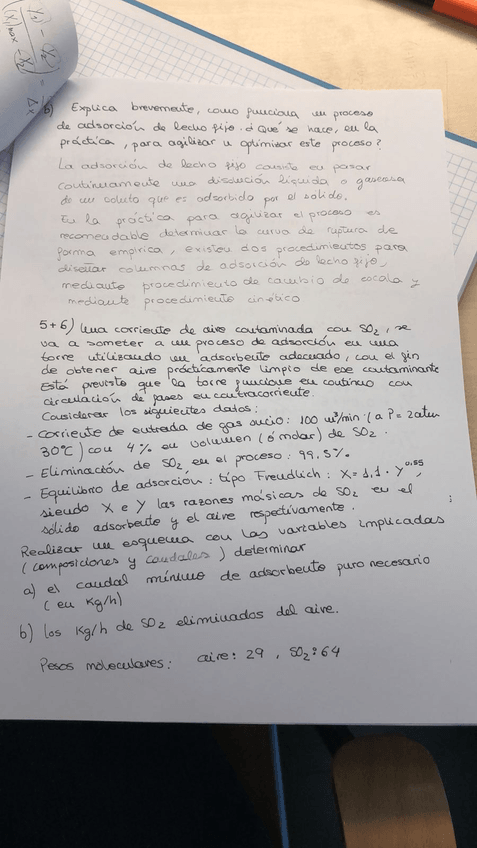 b) Explica brevemente, como funciona un proceso
de adsorción de lecho fijo. ¿Que se hace, en la
práctica, para agilizar u optimizar este proceso?
La adsorción de lecho fijo consiste en pasar
continuamente una disolución líquida o gaseosa
de un soluto que es adsorbido por el sólido.
En la práctica para agilizar el proceso es
recomendable determinar la curva de ruptura de
forma empírica, existen dos procedimientos para
diseñar columnas de adsorción de lecho fijo,
mediante procedimiento de cambio de escala y
mediante procedimiento cinético
5+6) Una corriente de aire contaminada con SO2, se
va a someter a un proceso de adsorción en una
torre utilizando un adsorbente adecuado, con el fin
de obtener aire prácticamente limpio de ese contaminante
Está previsto que la torre funcione en continuo con
circulación de gases en contracorriente.
Considerar los siguientes datos:
- Corriente de entrada de gas sucio: 100 m³/min (a P= 2atm
30°C) con 4% en volumen (ó molar) de SO2.
- Eliminación de SO2, en el proceso: 99,5%.
- Equilibrio de adsorción: tipo Freudlich: X= 1,1 · Y^0,55,
siendo X e Y las razones másicas de SO2 en el
sólido adsorbente y el aire respectivamente.
Realizar un esquema con las variables implicadas
(composiciones y caudales) determinar
a) el caudal mínimo de adsorbente puro necesario
(en Kg/h)
b) los Kg/h de SO2 eliminados del aire.
Pesos moleculares: aire: 29, SO2: 64